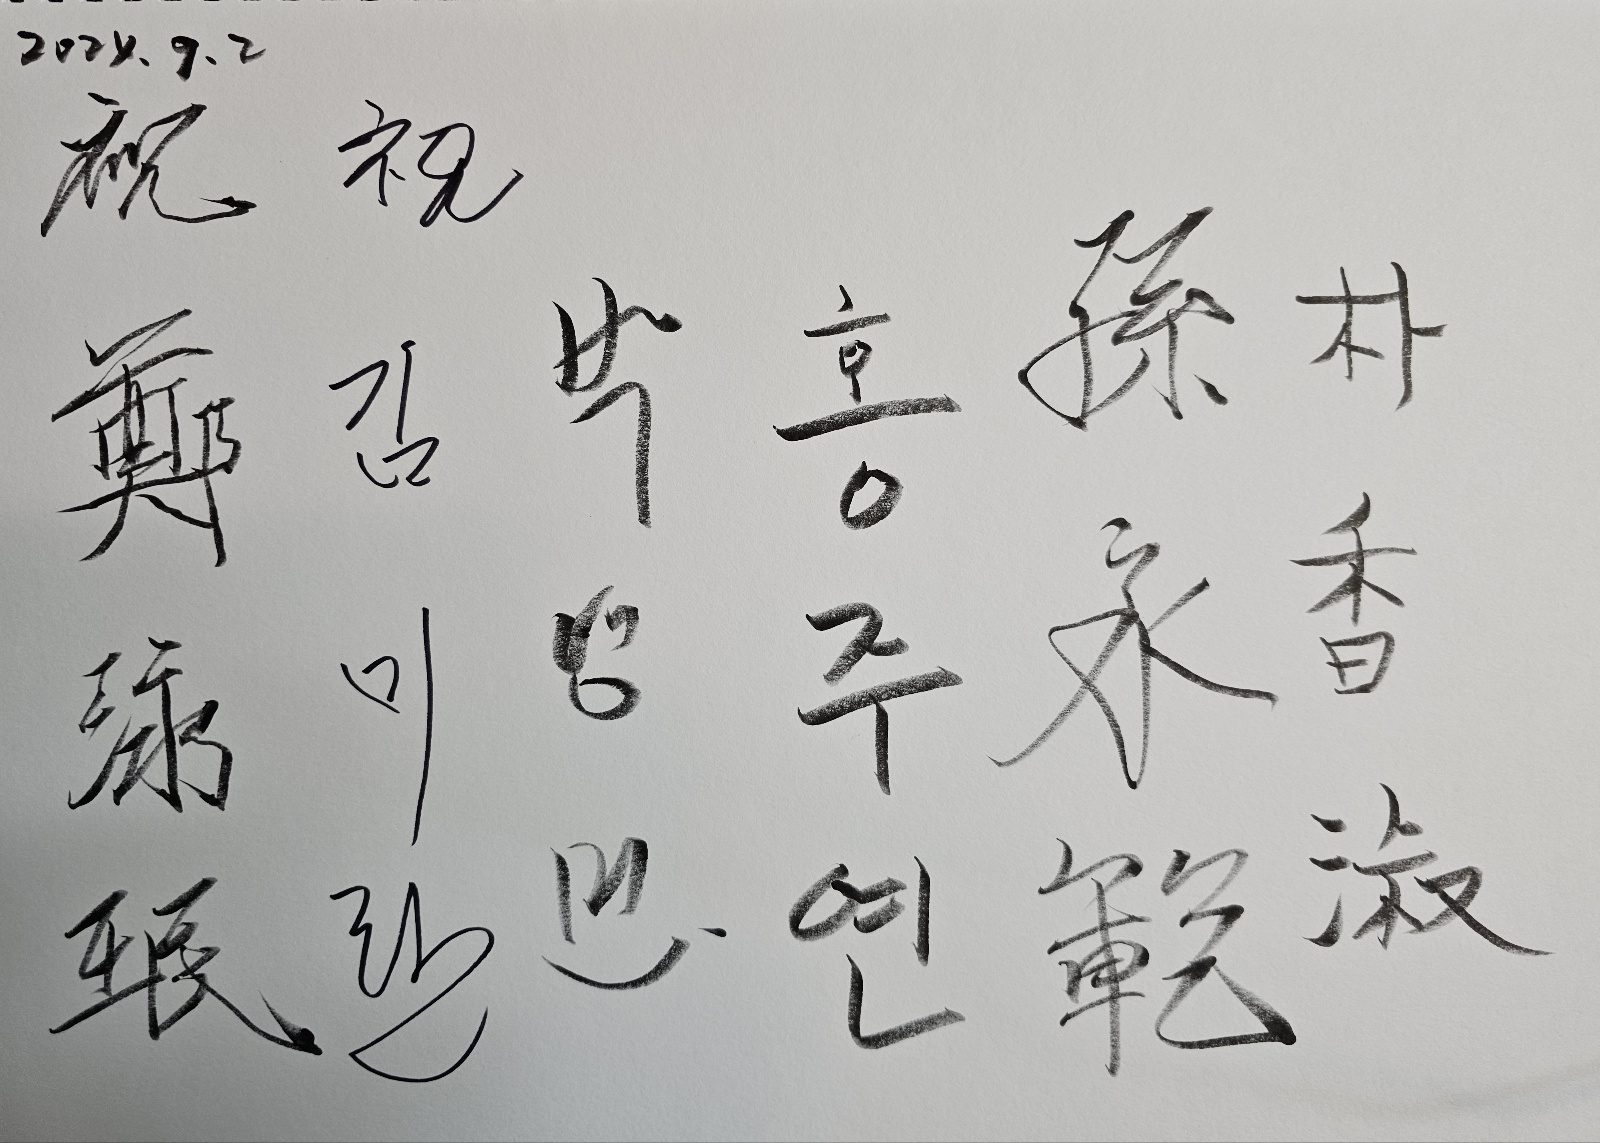 2024.9.2
祝 鄭 珉
祝 김미란
박
홍주연
孫永範
朴香淑